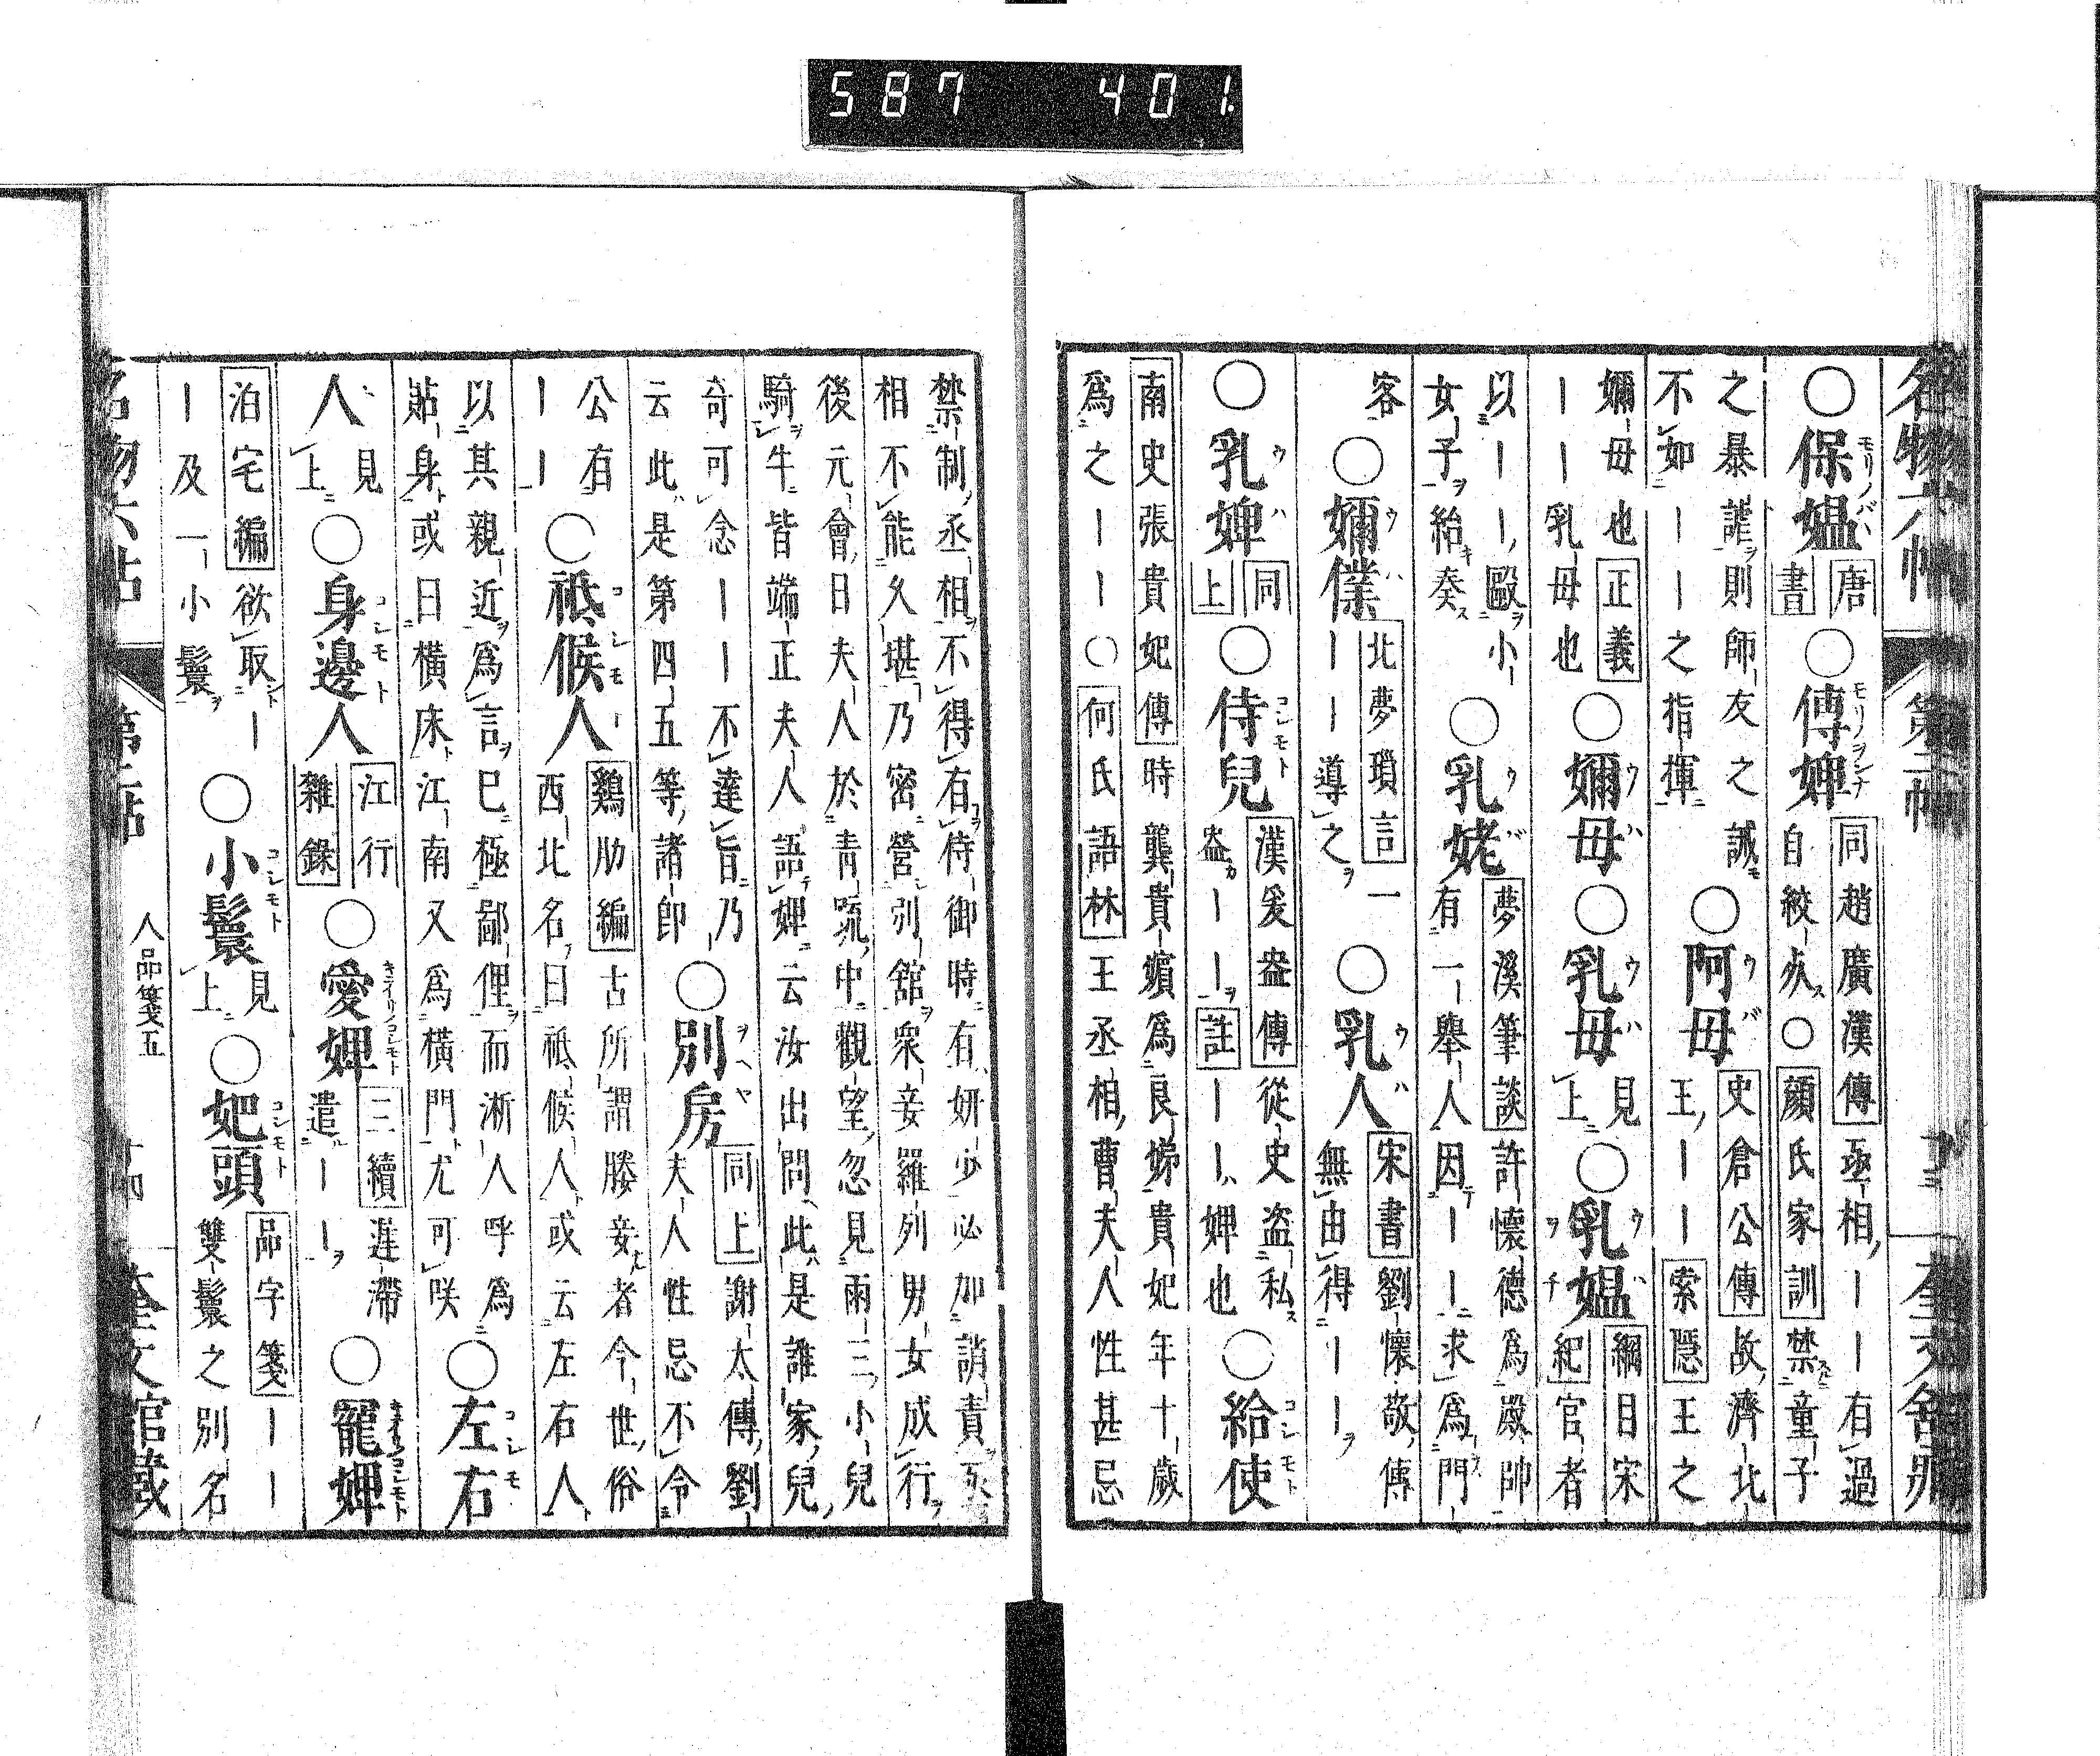 587 401
名物六帖 第二帖 十三 奎文舘藏
○保媼 唐書 ○傅婢 同趙廣漢傳 丞相ーー有過
自絞死○顏氏家訓 禁童子
之暴謔則師友之誡
不如ーー之指揮 ○阿母 史倉公傳 故濟北
王ーー 索隱 王之
嬭母也 正義
ーー乳母也 ○嬭母 ○乳母 見上 ○乳媼 綱目宋紀 官者
以ーー毆小
女子紿奏 ○乳姥 夢溪筆談 許懷德爲殿帥
有一舉人因ーー求爲門
客 ○嬭僕 北夢瑣言 一
ーーー導之 ○乳人 宋書 劉懷敬傳
無由得ーー
○乳婢 同上 ○侍兒 漢爰盎傳 從史盗私
盎ーー 註 ーー婢也 ○給使
南史張貴妃傳 時龔貴嬪爲良娣貴妃年十歲
爲之ーー○ 何氏語林 王丞相曹夫人性甚忌
禁制丞相不得有侍御時有妍少必加誚責丞
相不能久堪乃密營別舘衆妾羅列男女成行
後元會日夫人於青疏中觀望忽見兩三小兒
騎牛皆端正夫人語婢云汝出問此是誰家兒
奇可念ーー不達旨乃
云此是第四五等諸郎 ○別房 同上 謝太傅劉
夫人性忌不令
公有
ーー ○祗候人 鷄肋編 古所謂媵妾者今世俗
西北名曰祗候人或云左右人
以其親近爲言已極鄙俚而淅人呼爲
貼身或曰橫床江南又爲橫門尤可咲 ○左右
人 見上 ○身邊人 江行雜錄 ○愛婢 三續 遣ーー遲滯 ○寵婢
泊宅編 欲取ー
ー及一小鬟 ○小鬟 見上 ○妑頭 品字箋 ーー
雙鬟之別名
名物六帖 第二帖 人品箋五 十四 奎文舘藏